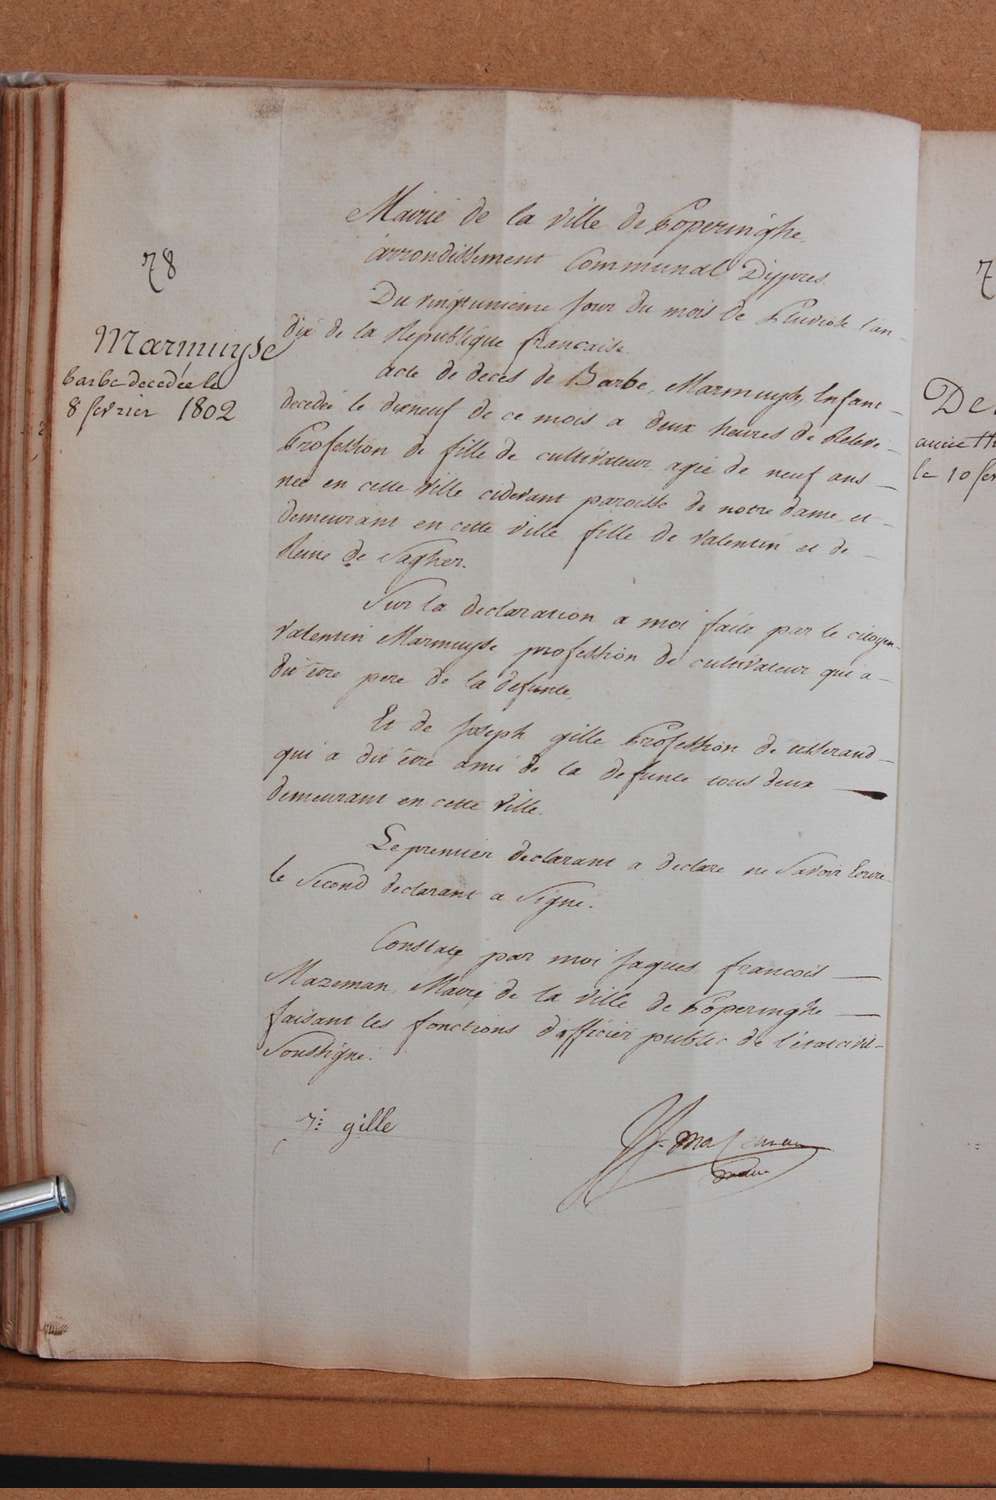 78
Marmuyse
barbe decedée le
8 fevrier 1802
Mairie de la ville de Poperinghe
arrondissement Communal Dijpres
Du vingtunieme jour du mois de Pluviose l'an
dix de la Republique francaise
acte de deces de Barbe Marmuyse, Enfant
decedée le dixneuf de ce mois a deux heures de Releve
Profession de fille de cultivateur ageé de neuf ans
neé en cette Ville cidevant paroisse de notre dame et
demeurant en cette ville fille de Valentin et de
Reine de Sagher.
Sur la declaration a moi faite par le citoyen
Valentin Marmuyse profession de cultivateur qui a
dit être pere de la defunte,
Et de Joseph gille Profession de tisserand
qui a dit être ami de la defunte tous deux
demeurant en cette Ville.
Le premier declarant a declare ne Savoir Ecrire
le Second declarant a Signé.
Constaté par moi Jaques francois
Mazeman Maire de la Ville de Poperinghe
faisant les fonctions d'officier public de l'etat civil
Soussigné.
gille
7
De
le 10 fev